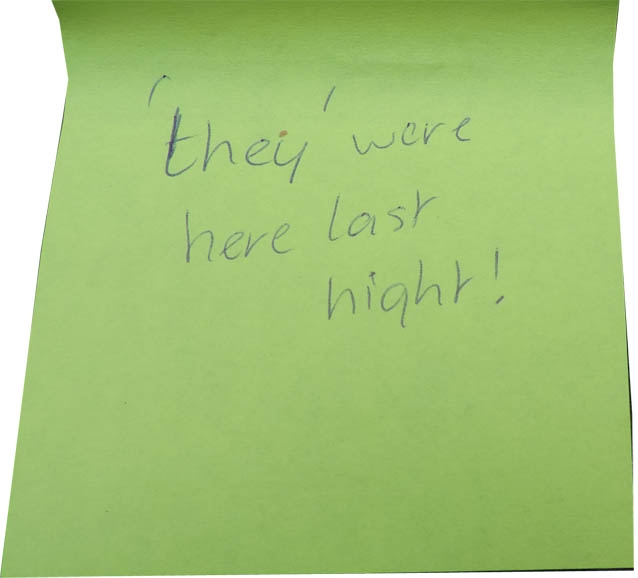 'they' were
here last
night!